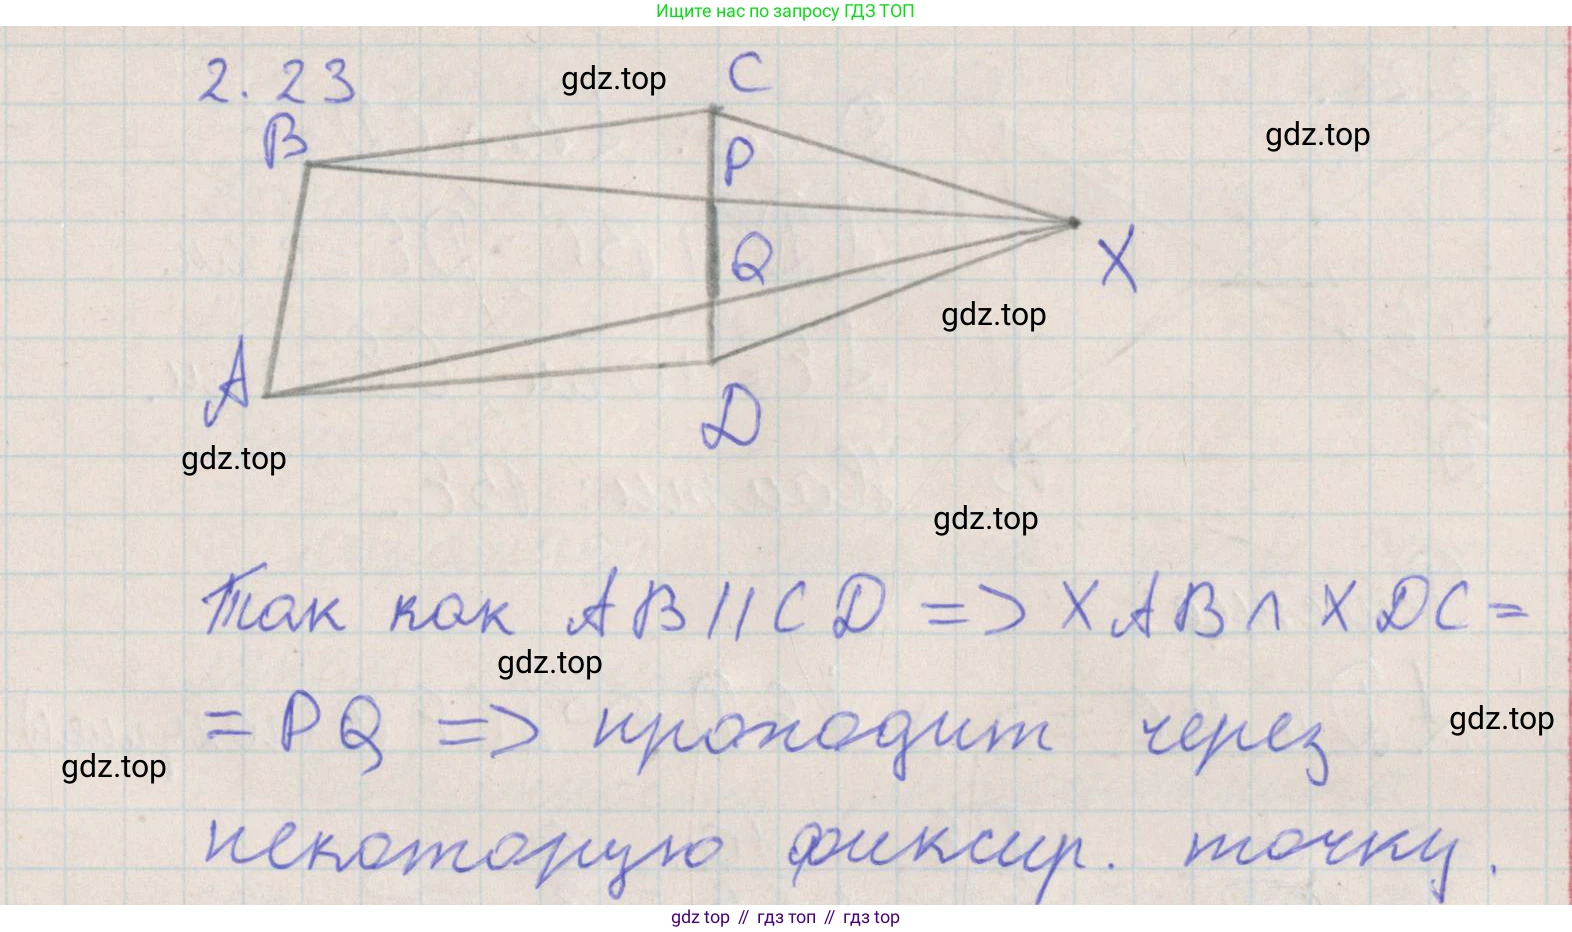 Ищите нас по запросу ГДЗ ТОП
2.23
gdz.top
C
B
P
gdz.top
Q
X
gdz.top
A
D
gdz.top
gdz.top
Так как AB||CD => XAB∩XDC=
gdz.top
=PQ => проходит через
gdz.top
gdz.top
некоторую фиксир. точку.
gdz top // гдз топ // гдз top